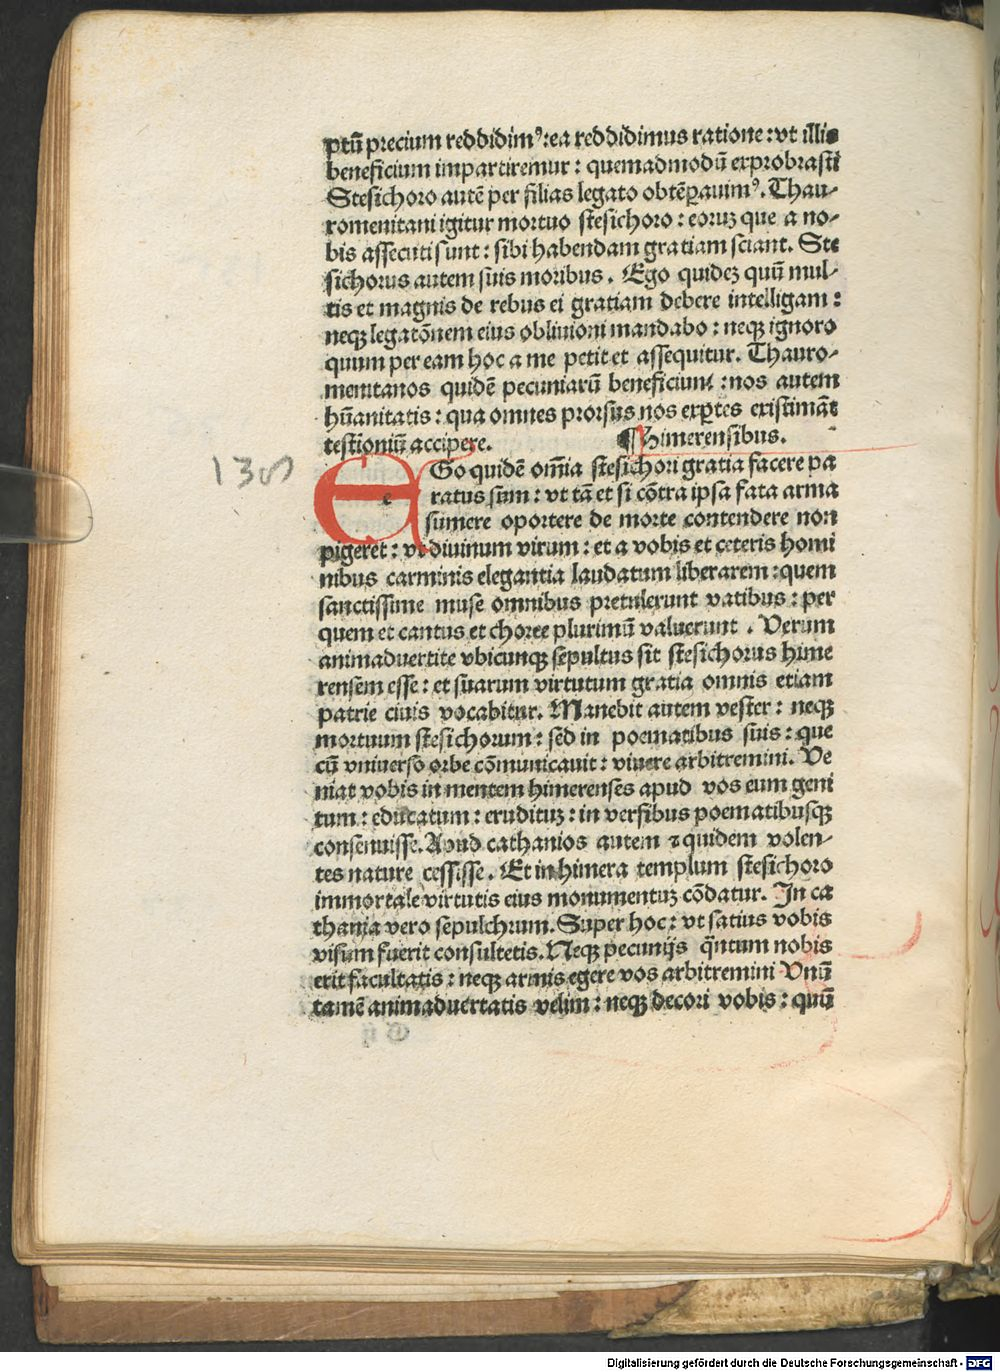 ptū precium reddidimꝰ: ea reddidimus ratione: vt illis
beneficium impartiremur: quemadmodū exprobrasti
Stesichoro autē per filias legato obtēꝑauimꝰ. Thau-
romenitani igitur mortuo stesichoro: eoruz que a no-
bis assecuti sunt: sibi habendam gratiam sciant. Ste
sichorus autem suis moribus. Ego quidez quū mul-
tis et magnis de rebus ei gratiam debere intelligam:
neqȝ legatōnem eius obliuioni mandabo: neqȝ ignoro
quum per eam hoc a me petit et assequitur. Thauro-
menitanos quidē pecuniarū beneficium: nos autem
hūanitatis: qua omnes prorsus nos exꝑtes existimāt
testioniū accipere. ¶ Himerensibus.
138
e
EGo quidē om̄ia stesichori gratia facere pa
ratus sum: vt tā et si cōtra ipsa fata arma
sumere oportere de morte contendere non
pigeret: vt diuinum virum: et a vobis et ceteris homi
nibus carminis elegantia laudatum liberarem: quem
sanctissime muse omnibus pretulerunt vatibus: per
quem et cantus et choree plurimū valuerunt. Verum
animaduertite vbicunqȝ sepultus sit stesichorus hime
rensem esse: et suarum virtutum gratia omnis etiam
patrie ciuis vocabitur. Manebit autem vester: neqȝ
mortuum stesichorum: sed in poematibus suis: que
cū vniuerso orbe cōmunicauit: viuere arbitremini. Ve
niat vobis in mentem himerenses apud vos eum geni
tum: educatum: erudituz: in versibus poematibusqȝ
consenuisse. Apud cathanios autem ⁊ quidem volen-
tes nature cessisse. Et in himera templum stesichoro
immortale virtutis eius monumentuz cōdatur. In ca
thania vero sepulchrum. Super hoc: vt satius vobis
visum fuerit consultetis. Neqȝ pecunijs q̄ntum nobis
erit facultatis: neqȝ armis egere vos arbitremini Vnū
tamē animaduertatis velim: neqȝ decori vobis: quū
Digitalisierung gefördert durch die Deutsche Forschungsgemeinschaft - DFG